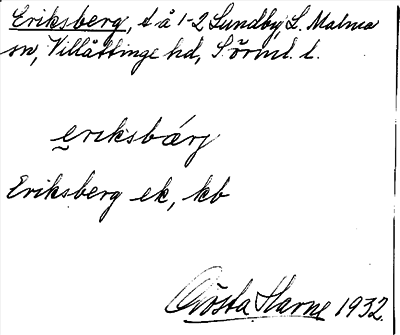 Eriksberg, t å 1-2 Lundby, L. Malma
sn, Villåttinge hd, Sörml. l.
eriksbärj
Eriksberg ek, kb
Gösta Harne 1932.